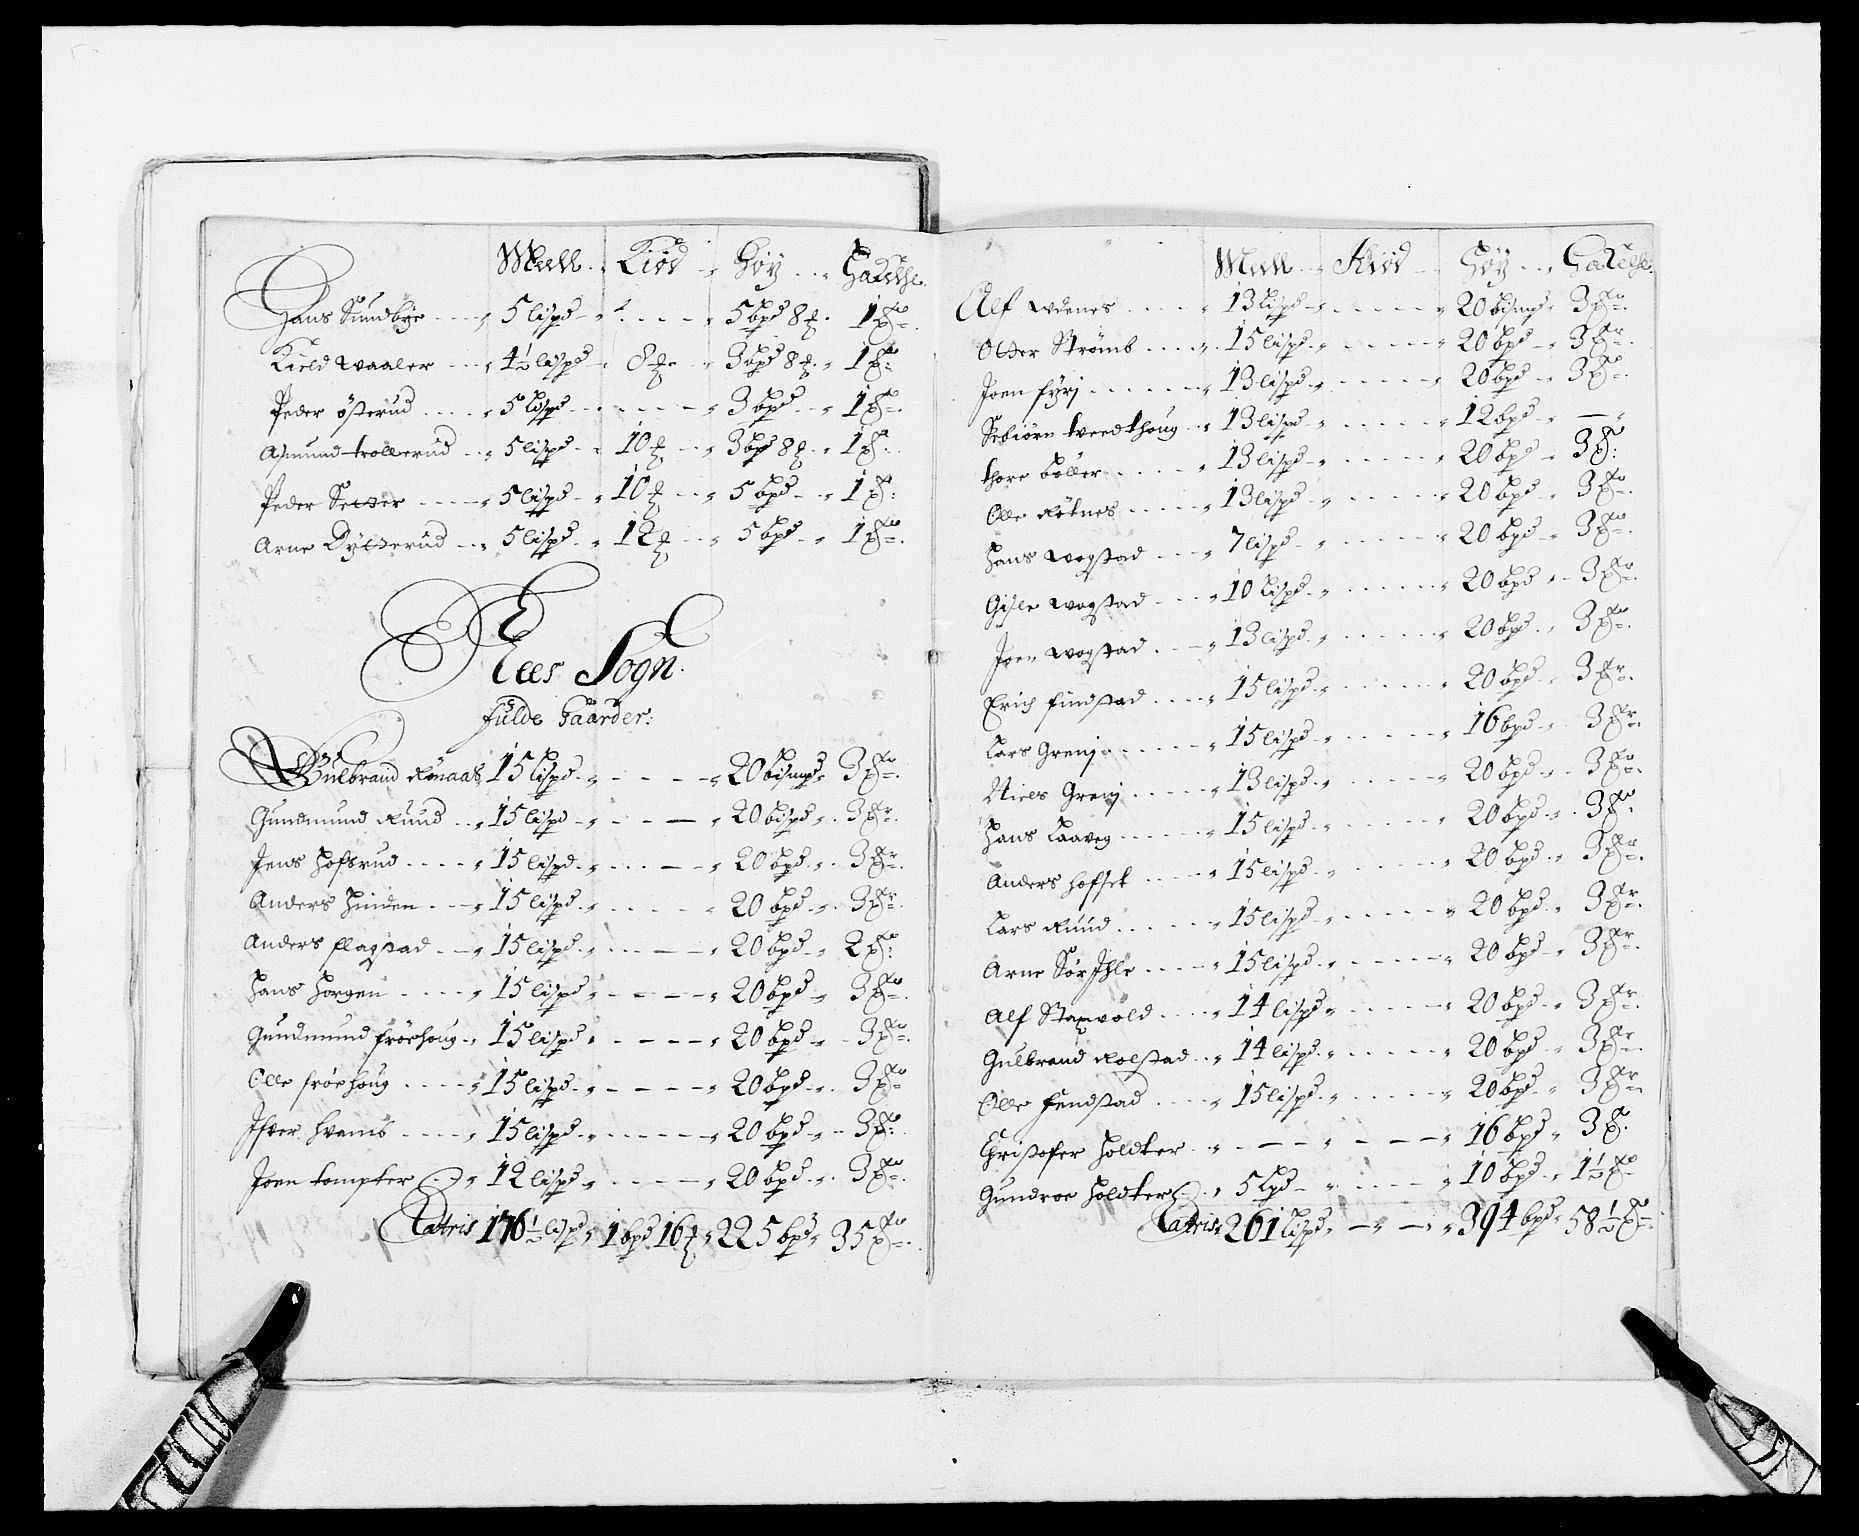 Meell Kiød Høy Hackelse
Hans Sundbye 5 lispd 5 bpd 8 ℔ 1
Kield Waaler 4½ lispd 8 ℔ 3 bpd 8 ℔ 1
Peder Østerud 5 lispd 3 bpd 1
Asmund trollerud 5 lispd 10 ℔ 3 bpd 8 ℔ 1
Peder Setter 5 lispd 10 ℔ 5 bpd 1
Arne Dytterud 5 lispd 12 ℔ 5 bpd 1
Ees Sogn
fulde Gaarder:
Gulbrand Rønaas 15 lispd 20 bismpd 3
Gundmund Ruud 15 lispd 20 bispd 3
Jens Hofsrud 15 lispd 20 bpd 3
Anders 15 lispd 20 bpd 3
Anders flagstad 15 lispd 20 bpd 2
Hans Horgen 15 lispd 20 bpd 3
Gundmund frøehoug 15 lispd 20 bpd 3
Olle frøehoug 15 lispd 20 bpd 3
Ifver Hvamb 15 lispd 20 bpd 3
Joen tompter 12 lispd 20 bpd 3
Latris 176½ lispd 1 bpd 16 ℔ 225 bpd 35
Meell Kiød Høy Hackelse
Alf Udenes 13 lispd 20 bismpd 3
Otter Strømb 15 lispd 20 bpd 3
Joen fyrj 13 lispd 20 bpd 3
tveedthoug 13 lispd 12 bpd —
thore bøller 13 lispd 20 bpd 3
Olle Røtnes 13 lispd 20 bpd 3
Hans Wogstad 7 lispd 20 bpd 3
Gisle Wogstad 10 lispd 20 bpd 3
Joen Wogstad 13 lispd 20 bpd 3
Erich findstad 15 lispd 20 bpd 3
Lars Grenj 15 lispd 16 bpd 3
Niels Grenj 13 lispd 20 bpd 3
Hans Laaveg 15 lispd 20 bpd 3
Anders Hofset 15 lispd 20 bpd 3
Lars Ruud 15 lispd 20 bpd 3
Arne Sør Ihle 15 lispd 20 bpd 3
Alf Staxvold 14 lispd 20 bpd 3
Gulbrand Rolstad 14 lispd 20 bpd 3
Olle fendstad 15 lispd 20 bpd 3
Christofer Holdter 16 bpd 3
Gundroe Holdter 5 lpd 10 bpd 1½
Latris 261 lispd 394 bpd 58½